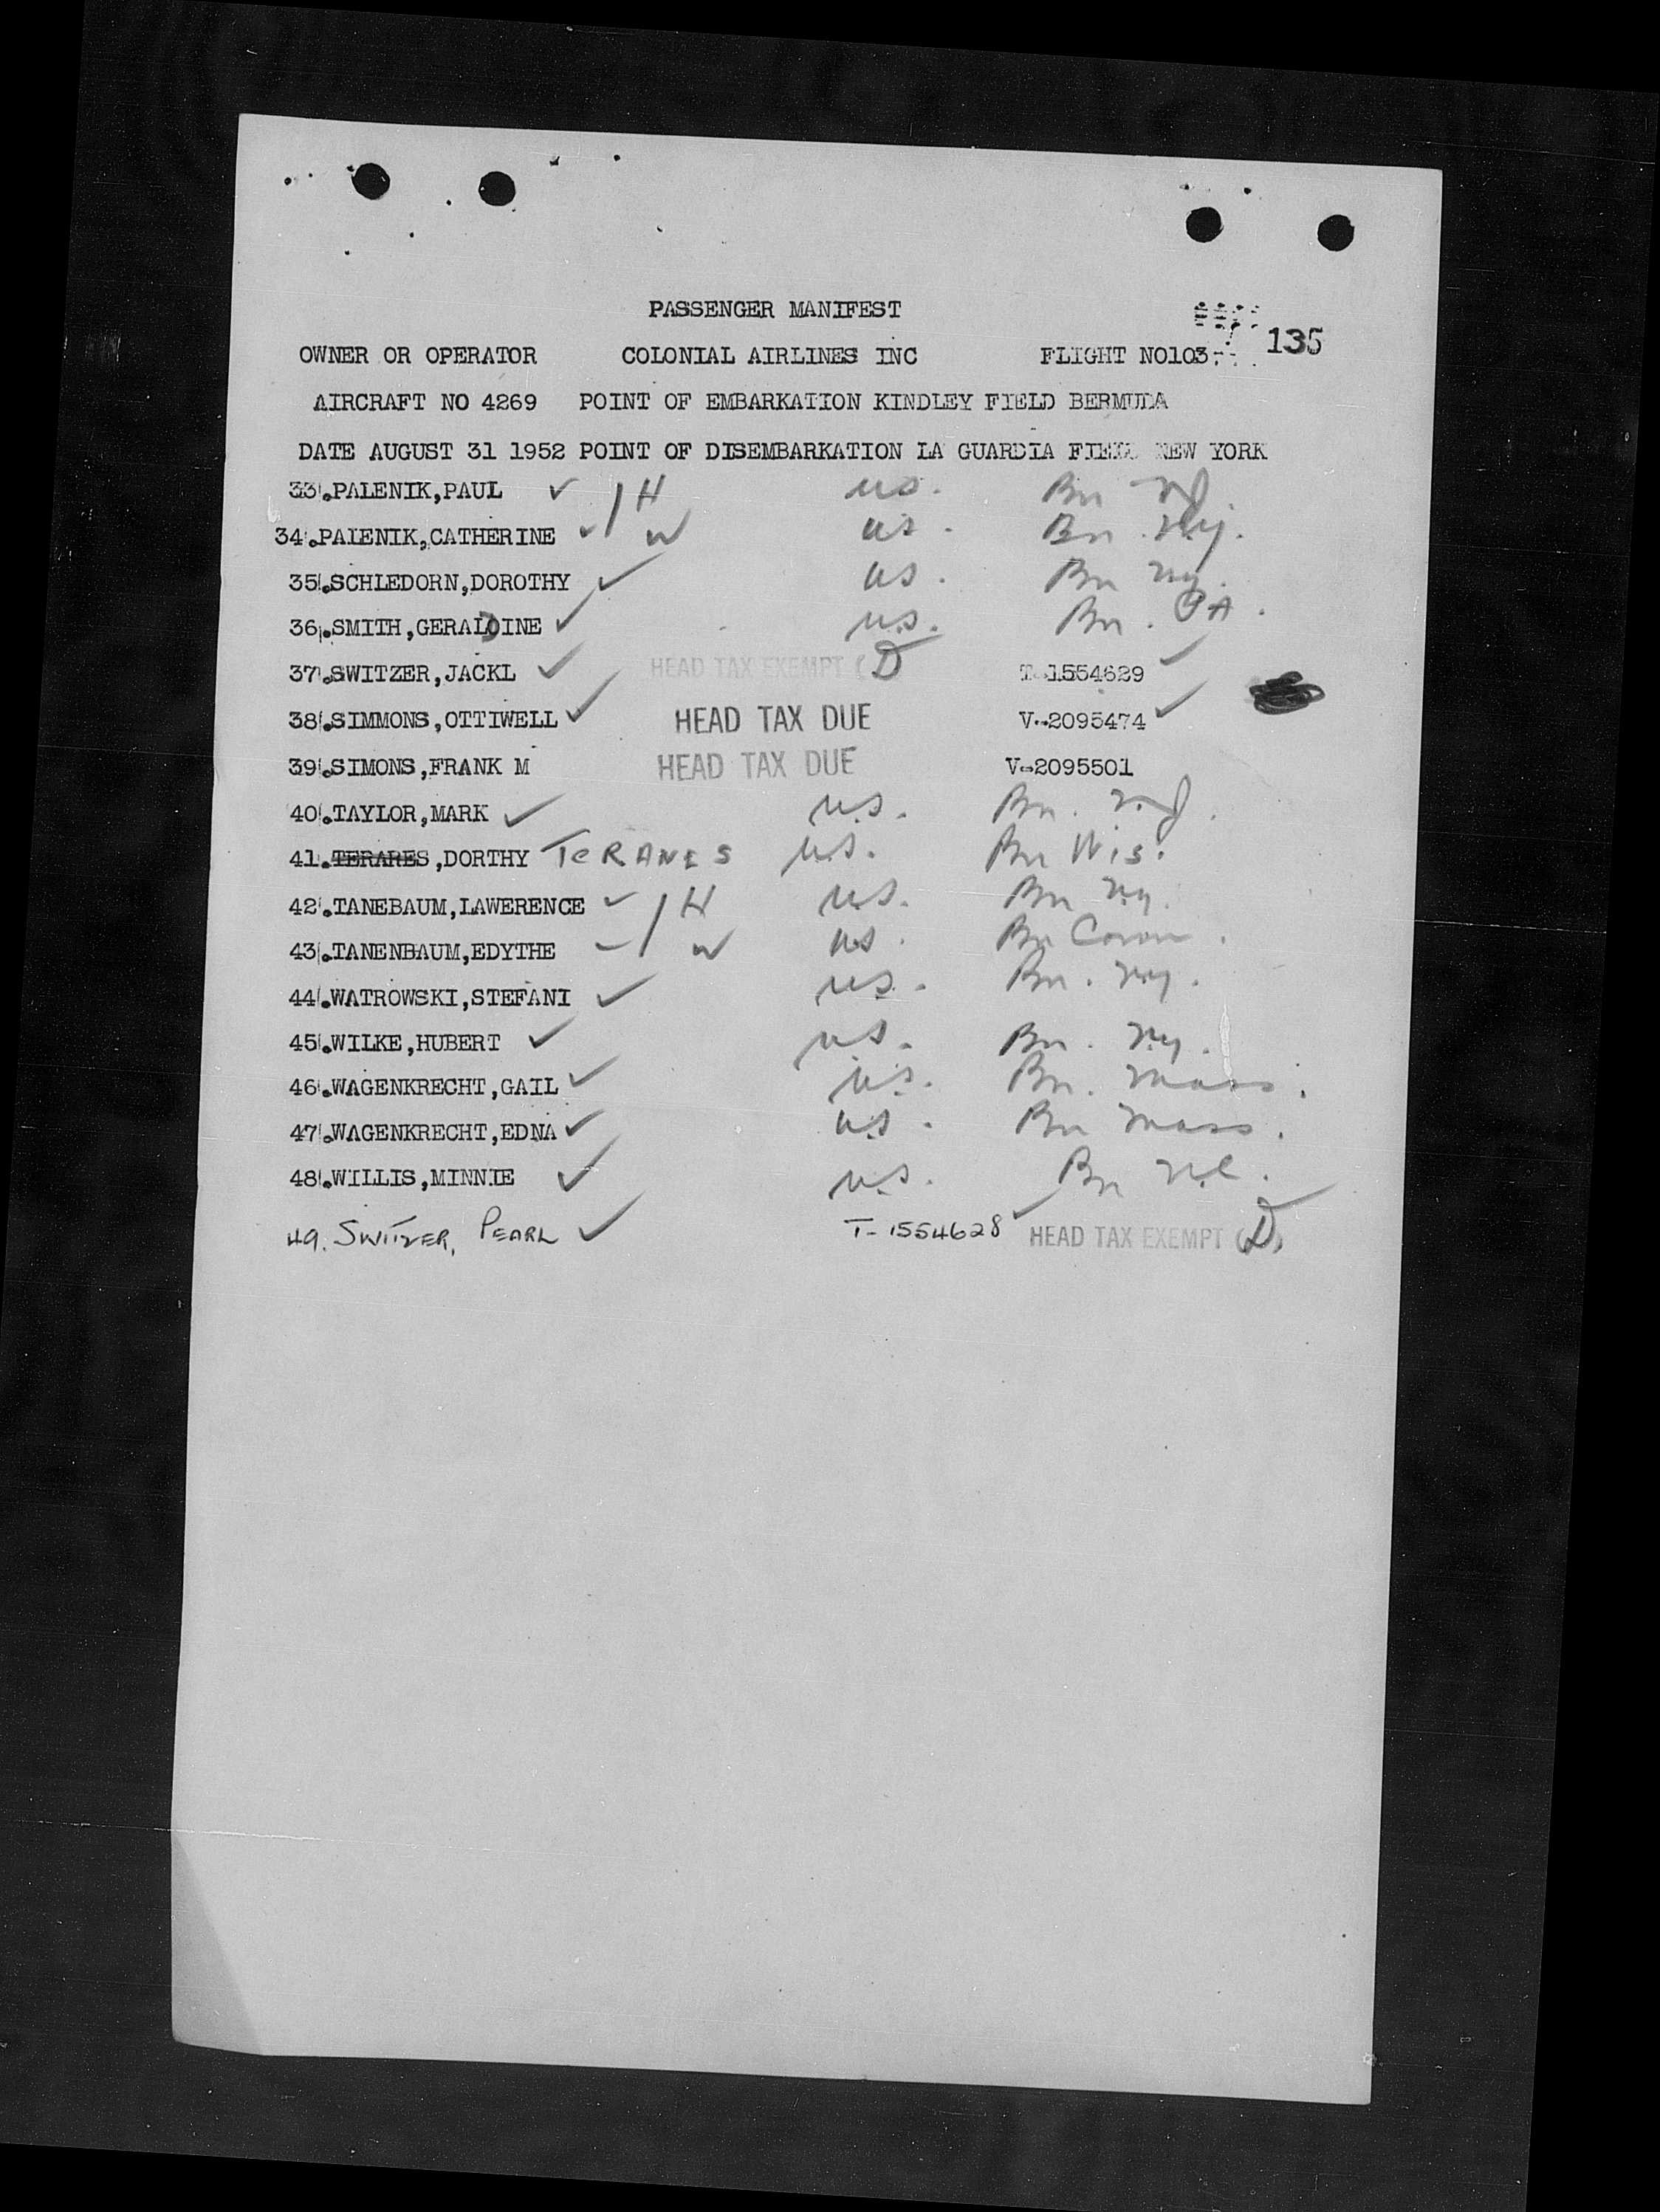 PASSENGER MANIFEST
135
OWNER OR OPERATOR COLONIAL AIRLINES INC FLIGHT NO103
AIRCRAFT NO 4269 POINT OF EMBARKATION KINDLEY FIELD BERMUDA
DATE AUGUST 31 1952 POINT OF DISEMBARKATION LA GUARDIA FIELD NEW YORK
33.PALENIK,PAUL ✓ / H U.S. Bn NJ.
34.PALENIK,CATHERINE ✓ / W U.S. Bn. N.J.
35.SCHLEDORN,DOROTHY ✓ U.S. Bn N.Y.
36.SMITH,GERALDINE ✓ U.S. Bn. PA.
37.SWITZER,JACKL ✓ HEAD TAX EXEMPT (D T-1554629 ✓
38.SIMMONS,OTTIWELL ✓ HEAD TAX DUE V-2095474 ✓
39.SIMONS,FRANK M HEAD TAX DUE V-2095501
40.TAYLOR,MARK ✓ U.S. Bn. N.J.
41.TERARES,DORTHY TERANES U.S. Bn Wis.
42.TANEBAUM,LAWERENCE ✓ / H U.S. Bn N.Y.
43.TANENBAUM,EDYTHE / W U.S. Bn Conn.
44.WATROWSKI,STEFANI ✓ U.S. Bn. N.Y.
45.WILKE,HUBERT ✓ U.S. Bn. N.Y.
46.WAGENKRECHT,GAIL ✓ U.S. Bn. Mass.
47.WAGENKRECHT,EDNA ✓ U.S. Bn Mass.
48.WILLIS,MINNIE ✓ U.S. Bn N.C.
49. SWITZER, PEARL ✓ T-1554628 ✓ HEAD TAX EXEMPT (D)